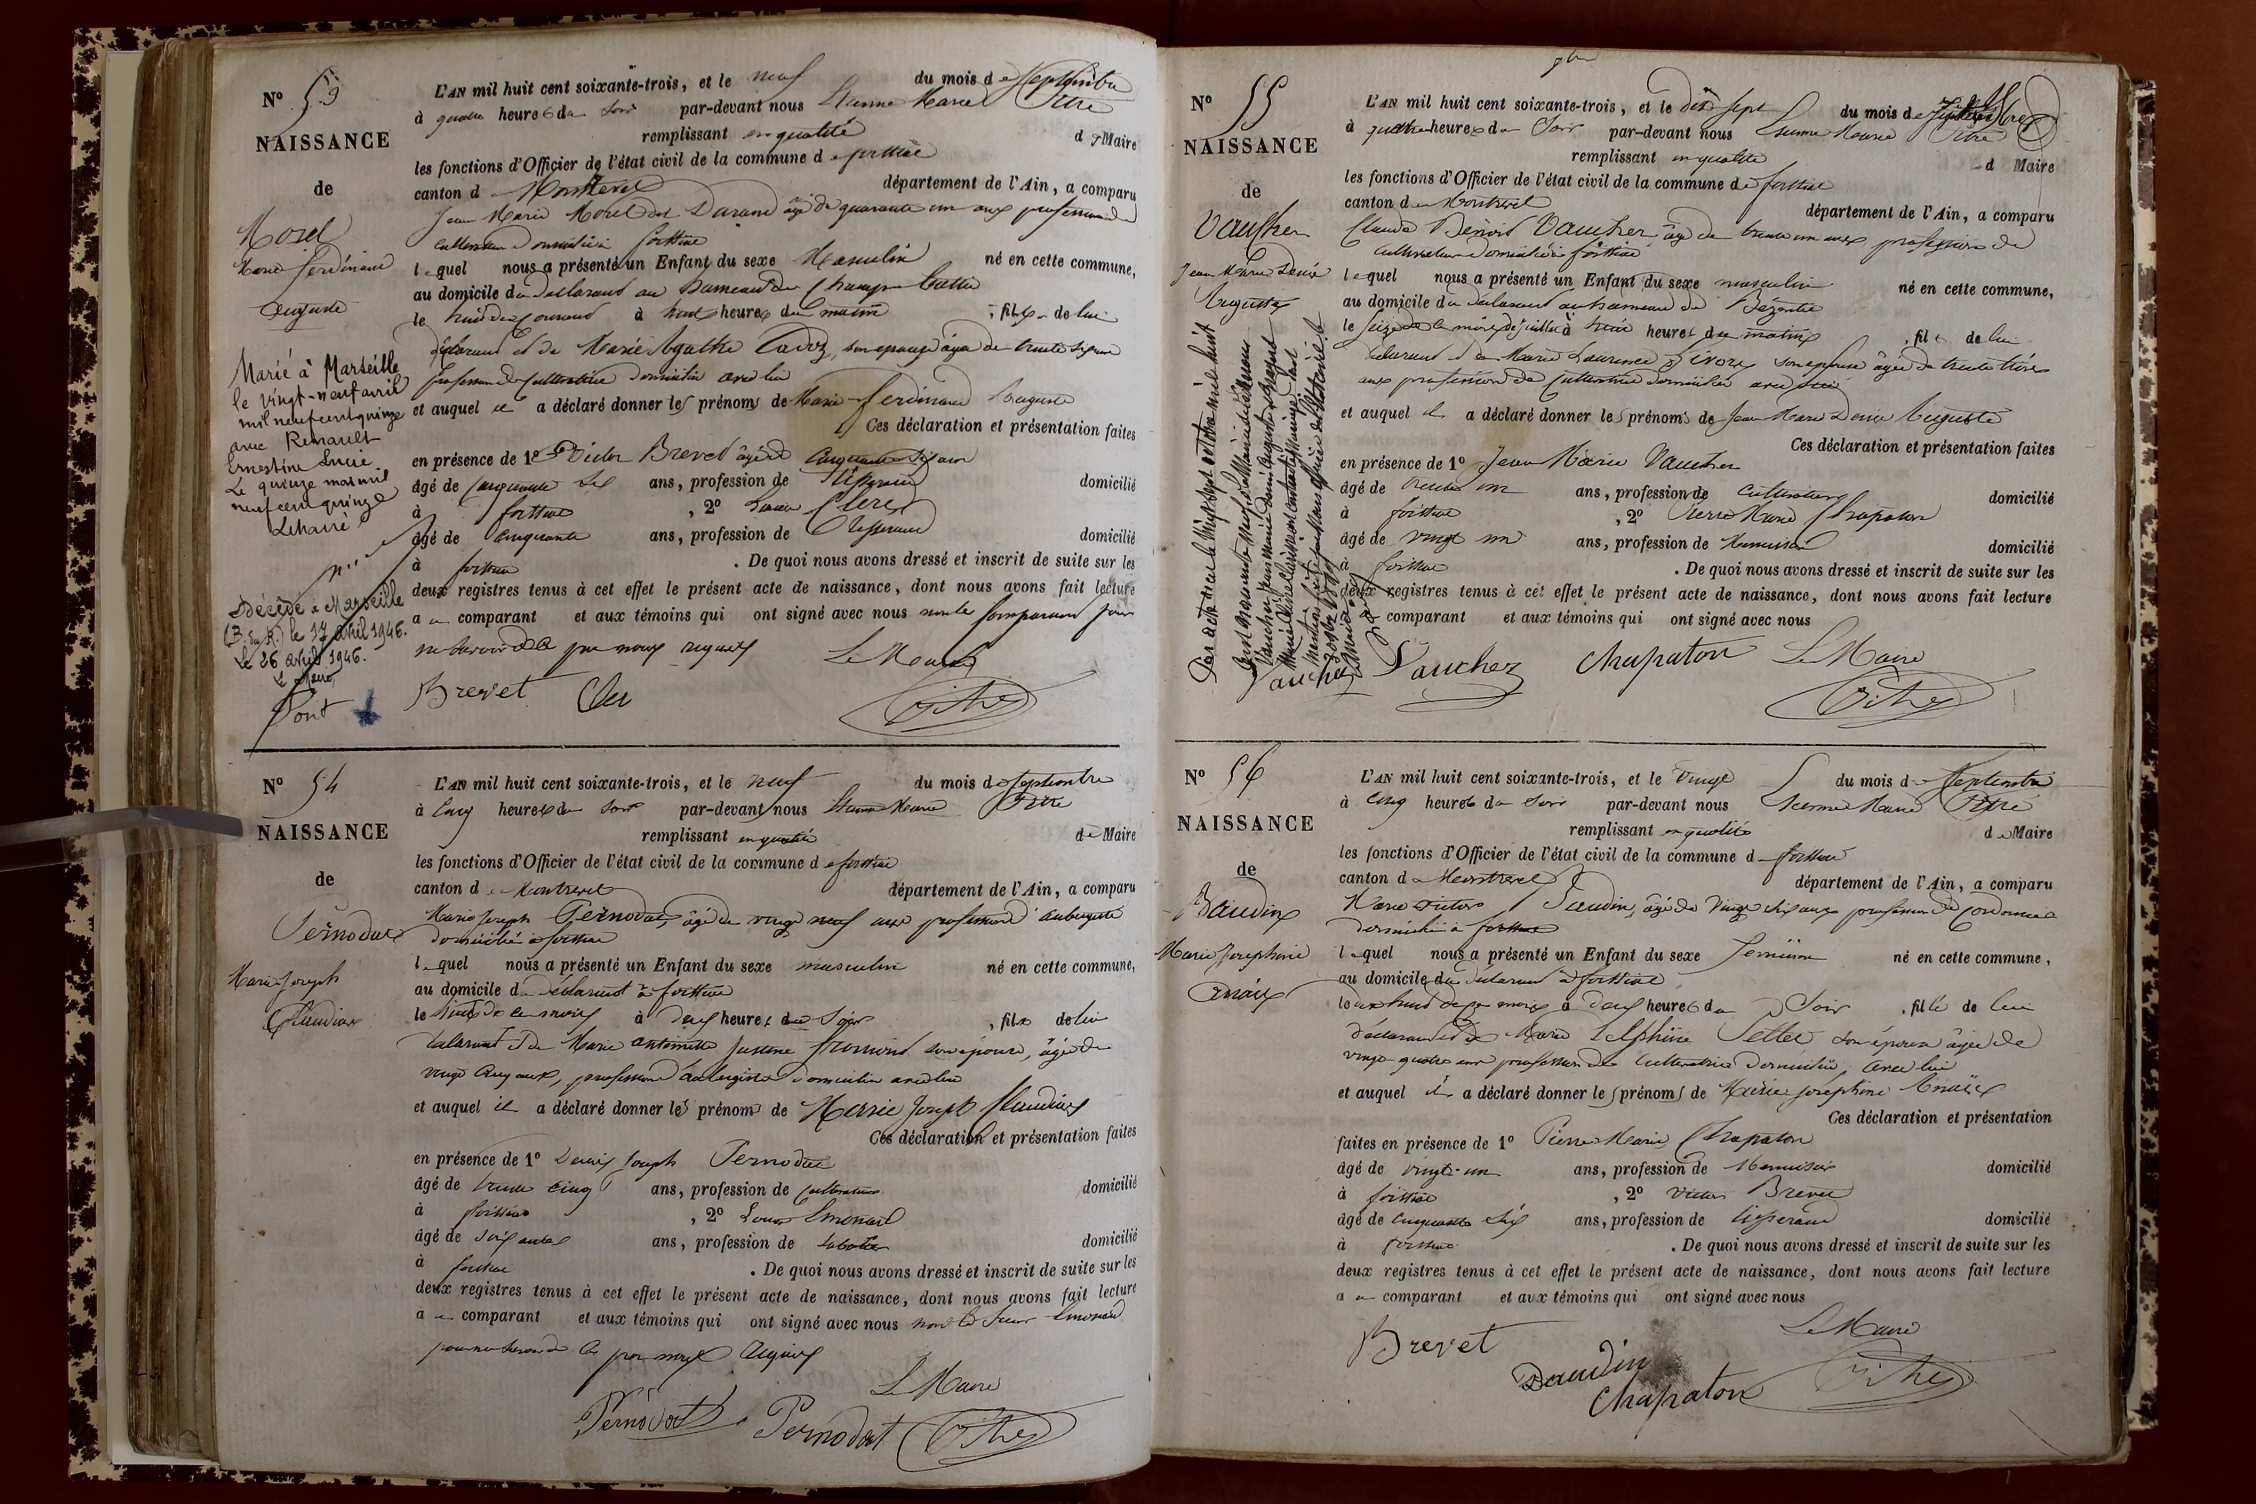 N° 53
NAISSANCE
de
Morel
Marie Ferdinand
Auguste
Marié à Marseille
le vingt-neuf avril
mil neuf cent quinze
avec Renault
Ernestine Lucie.
Le quinze mai mil
neuf cent quinze
Décédé à Marseille
le 17 avril 1946.
Le 26 avril 1946.
Le Maire
L'AN mil huit cent soixante-trois, et le neuf du mois de Septembre
à quatre heures du soir par-devant nous Pitre
remplissant en qualité de Maire
les fonctions d'Officier de l'état civil de la commune de foissiat
canton de Montrevel département de l'Ain, a comparu
Jean Marie Morel dit Durand âgé de quarante un ans profession de
cultivateur domicilié à foissiat
lequel nous a présenté un Enfant du sexe Masculin né en cette commune,
au domicile du déclarant au hameau de
le huit du courant à huit heures du matin, fils de lui
déclarant et de Marie Agathe son épouse âgée de trente
profession de cultivatrice domiciliée avec lui
et auquel il a déclaré donner les prénoms de Marie Ferdinand Auguste
Ces déclaration et présentation faites
en présence de 1° Victor Brevet âgé de cinquante six ans
âgé de cinquante six ans, profession de tisserand domicilié
à foissiat, 2° Clerc
âgé de cinquante ans, profession de tisserand domicilié
à foissiat. De quoi nous avons dressé et inscrit de suite sur les
deux registres tenus à cet effet le présent acte de naissance, dont nous avons fait lecture
au comparant et aux témoins qui ont signé avec nous non le comparant pour
ne savoir de ce par nous requis
Le Maire
Brevet Clerc Pitre
N° 54
NAISSANCE
de
Pernodat
Marie Joseph
Claudius
L'AN mil huit cent soixante-trois, et le neuf du mois de Septembre
à cinq heures du soir par-devant nous Pitre
remplissant en qualité de Maire
les fonctions d'Officier de l'état civil de la commune de foissiat
canton de Montrevel département de l'Ain, a comparu
Marie Joseph Pernodat, âgé de vingt neuf ans profession d'aubergiste
domicilié à foissiat
lequel nous a présenté un Enfant du sexe masculin né en cette commune,
au domicile du déclarant à foissiat
le de ce mois à deux heures du soir, fils de lui
déclarant et de Marie Antoinette Justine Promont son épouse, âgée de
vingt cinq ans, profession d'aubergiste domiciliée avec lui
et auquel il a déclaré donner les prénoms de Marie Joseph Claudius
Ces déclaration et présentation faites
en présence de 1° Denis Joseph Pernodat
âgé de trente cinq ans, profession de cultivateur domicilié
à foissiat, 2° Louis
âgé de soixante ans, profession de sabotier domicilié
à foissiat. De quoi nous avons dressé et inscrit de suite sur les
deux registres tenus à cet effet le présent acte de naissance, dont nous avons fait lecture
au comparant et aux témoins qui ont signé avec nous non le sieur
pour ne savoir de ce par nous requis
Le Maire
Pernodat Pernodat Pitre
N° 55
NAISSANCE
de
Vaucher
Jean Marie Denis
Auguste
L'AN mil huit cent soixante-trois, et le dix sept du mois de
à quatre heures du soir par-devant nous Pitre
remplissant en qualité de Maire
les fonctions d'Officier de l'état civil de la commune de foissiat
canton de Montrevel département de l'Ain, a comparu
Claude Benoit Vaucher âgé de trente un ans profession de
cultivateur domicilié à foissiat
lequel nous a présenté un Enfant du sexe masculin né en cette commune,
au domicile du déclarant au hameau de
le seize de ce mois à heures du matin, fils de lui
déclarant et de Marie Laurence son épouse âgée de trente trois
ans profession de cultivatrice domiciliée avec lui
et auquel il a déclaré donner les prénoms de Jean Marie Denis Auguste
Ces déclaration et présentation faites
en présence de 1° Jean Marie Vaucher
âgé de trente un ans, profession de cultivateur domicilié
à foissiat, 2° Pierre Marie Chapaton
âgé de vingt un ans, profession de Menuisier domicilié
à foissiat. De quoi nous avons dressé et inscrit de suite sur les
deux registres tenus à cet effet le présent acte de naissance, dont nous avons fait lecture
au comparant et aux témoins qui ont signé avec nous
Vaucher Vaucher Chapaton Le Maire
Pitre
N° 56
NAISSANCE
de
Baudin
Marie Josephine
Anaïs
L'AN mil huit cent soixante-trois, et le vingt du mois de Septembre
à cinq heures du soir par-devant nous Pitre
remplissant en qualité de Maire
les fonctions d'Officier de l'état civil de la commune de foissiat
canton de Montrevel département de l'Ain, a comparu
Marie Victor Baudin, âgé de vingt six ans profession de cordonnier
domicilié à foissiat
lequel nous a présenté un Enfant du sexe féminin né en cette commune,
au domicile du déclarant à foissiat
le dix huit de ce mois à deux heures du soir, fille de lui
déclarant et de Marie Delphine son épouse âgée de
vingt quatre ans profession de cultivatrice domiciliée avec lui
et auquel il a déclaré donner les prénoms de Marie Joséphine Anaïs
Ces déclaration et présentation
faites en présence de 1° Pierre Marie Chapaton
âgé de vingt-un ans, profession de Menuisier domicilié
à foissiat, 2° Victor Brevet
âgé de cinquante six ans, profession de tisserand domicilié
à foissiat. De quoi nous avons dressé et inscrit de suite sur les
deux registres tenus à cet effet le présent acte de naissance, dont nous avons fait lecture
au comparant et aux témoins qui ont signé avec nous
Le Maire
Brevet Baudin Chapaton Pitre